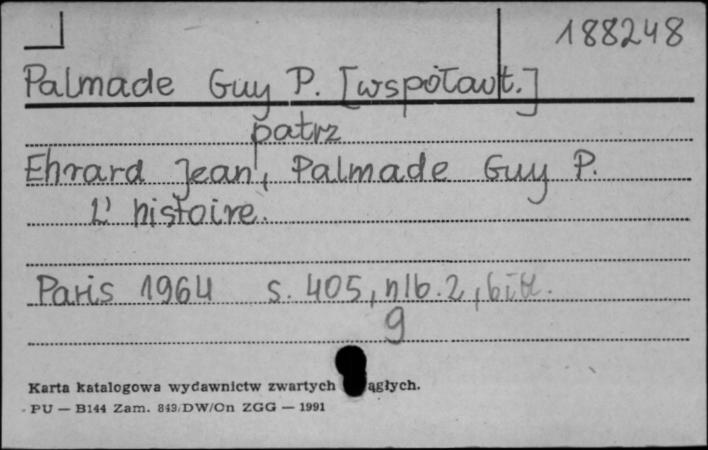 188248
Palmade Guy P. [współaut.]
patrz
Ehrard Jean, Palmade Guy P.
L' histoire.
Paris 1964 s. 405, nlb. 2, bibl.
9
Karta katalogowa wydawnictw zwartych ągłych.
PU — B144 Zam. 849/DW/On ZGG — 1991